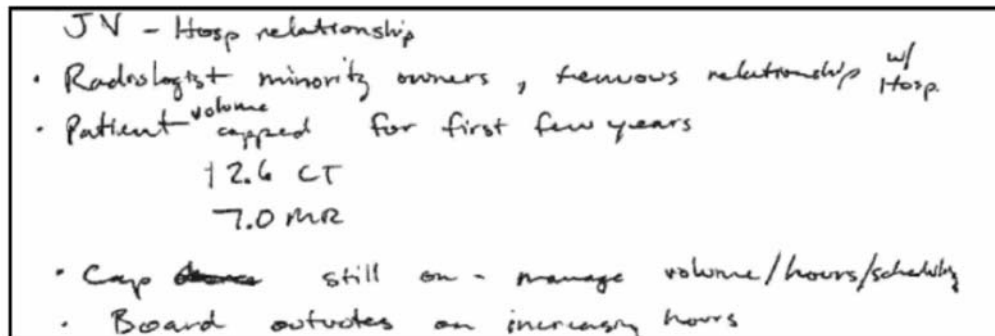 JV - Hosp relationship
· Radiologist minority owners, tenuous relationship w/ Hosp.
· Patient volume capped for first few years
12.6 CT
7.0 MR
· Cap still on - manage volume/hours/scheduling
· Board outvotes on increasing hours